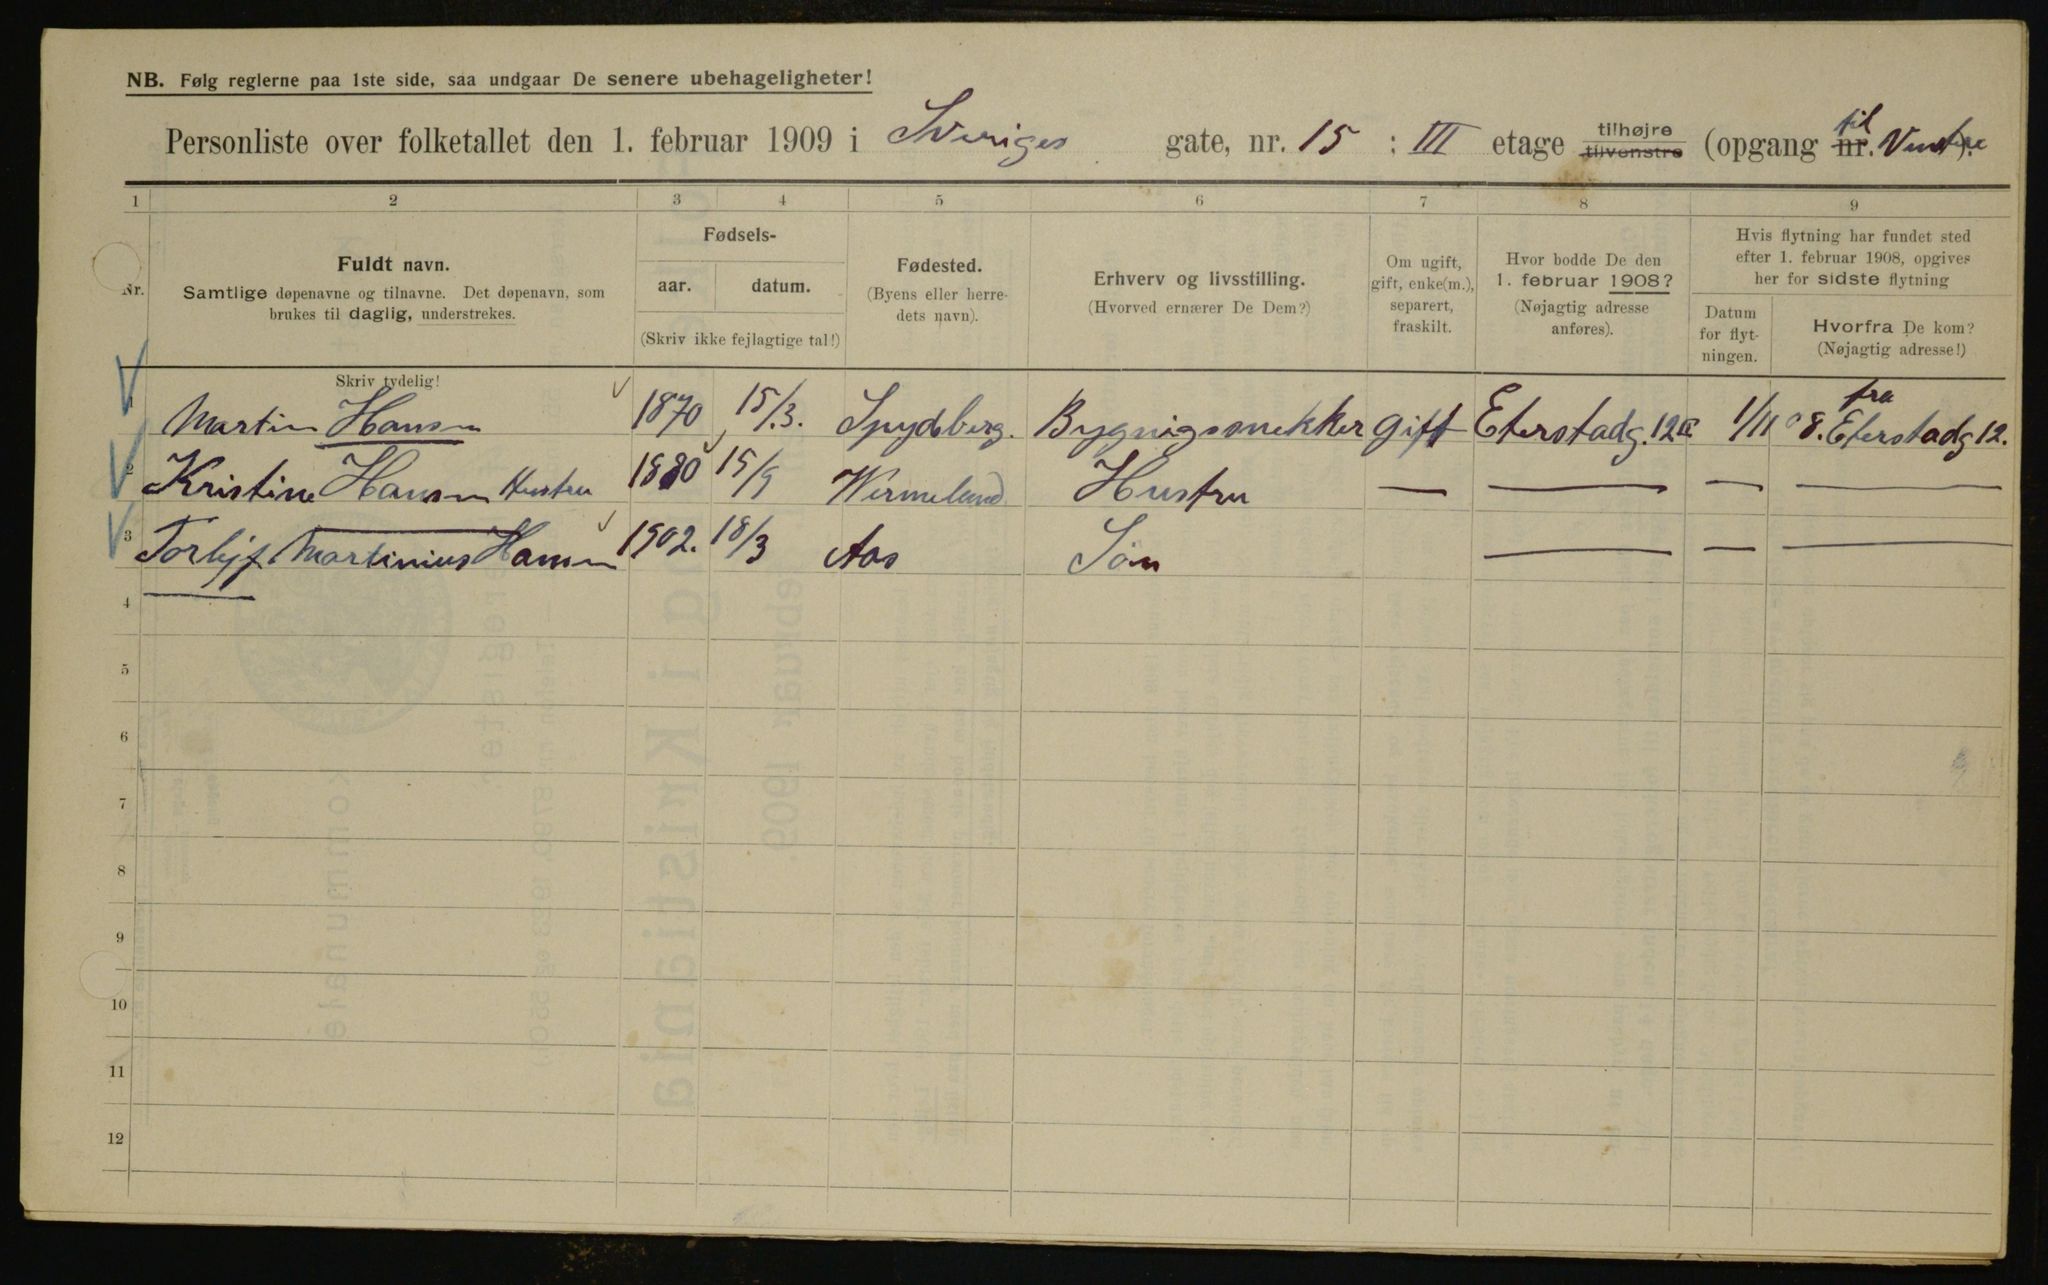 NB. Følg reglerne paa 1ste side, saa undgaar De senere ubehageligheter!
Personliste over folketallet den 1. februar 1909 i Sveriges gate, nr. 15 : III etage tilhøjre tilvenstre (opgang nr. til Venstre).
1 2 3 4 5 6 7 8 9
Nr.
Fuldt navn.
Samtlige døpenavne og tilnavne. Det døpenavn, som
brukes til daglig, understrekes.
Skriv tydelig!
Fødsels-
aar. datum.
(Skriv ikke fejlagtige tal!)
Fødested.
(Byens eller herre-
dets navn).
Erhverv og livsstilling.
(Hvorved ernærer De Dem?)
Om ugift,
gift, enke(m.),
separert,
fraskilt.
Hvor bodde De den
1. februar 1908?
(Nøjagtig adresse
anføres).
Hvis flytning har fundet sted
efter 1. februar 1908, opgives
her for sidste flytning
Datum
for flyt-
ningen.
Hvorfra De kom?
(Nøjagtig adresse!)
1 Martin Hansen 1870 15/3. Spydeberg. Bygnigssnekker gift Eterstadg. 12 III 1/11 08. fra Eterstadg 12.
2 Kristine Hansen Hustru 1880 15/9 Wermeland Hustru — — — —
3 Torlijf Martinius Hansen 1902. 18/3 Aas Søn — — —
4
5
6
7
8
9
10
11
12